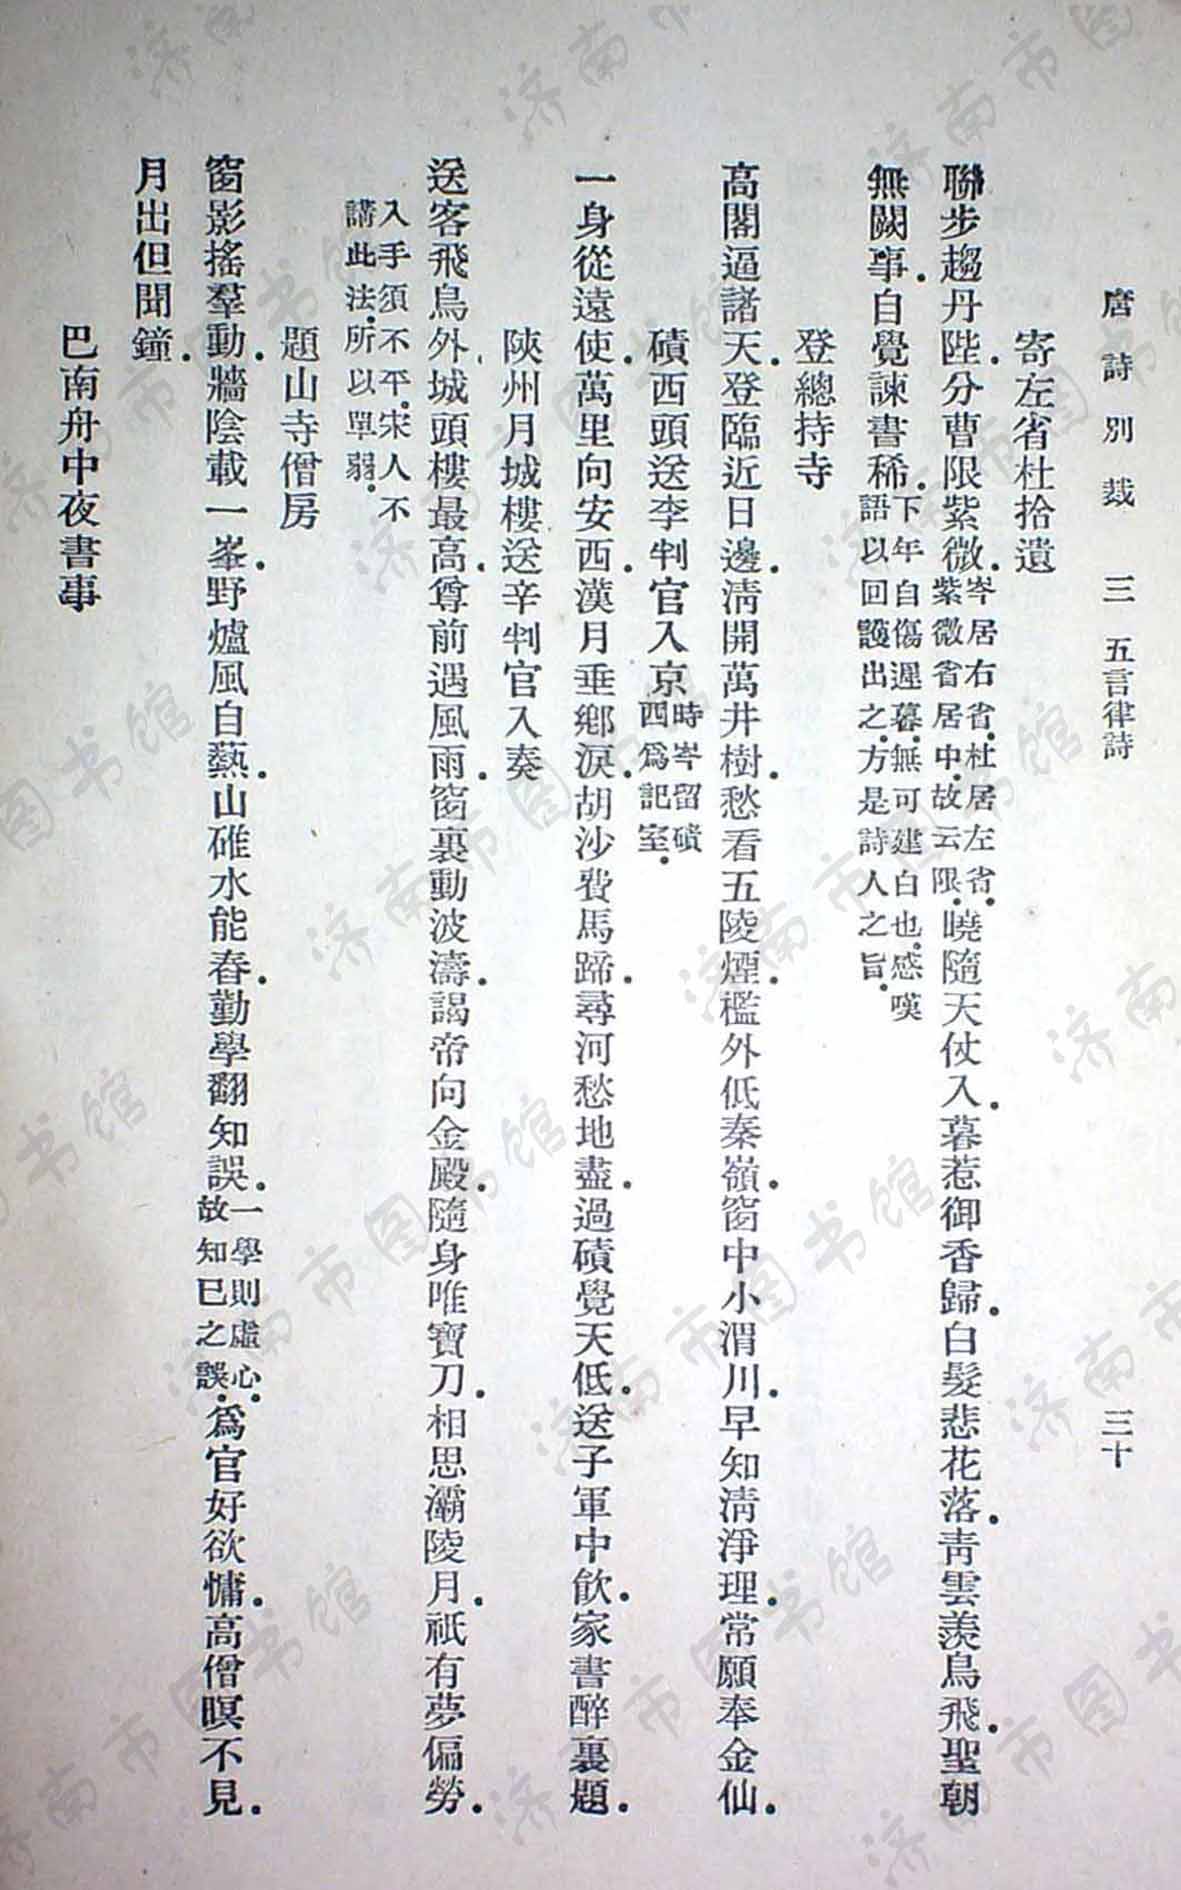 唐詩別裁 三 五言律詩 三十
寄左省杜拾遺
聯步趨丹陛.分曹限紫微.岑居右省.杜居左省.紫微省居中.故云限.曉隨天仗入.暮惹御香歸.白髮悲花落.青雲羨鳥飛.聖朝
無闕事.自覺諫書稀.下年自傷遲暮.無可建白也.感嘆語以回護出之.方是詩人之旨.
登總持寺
高閣逼諸天.登臨近日邊.淸開萬井樹.愁看五陵煙.檻外低秦嶺.窗中小渭川.早知淸淨理.常願奉金仙.
磧西頭送李判官入京時岑留磧西爲記室.
一身從遠使.萬里向安西.漢月垂鄉淚.胡沙費馬蹄.尋河愁地盡.過磧覺天低.送子軍中飲.家書醉裏題.
陝州月城樓送辛判官入奏
送客飛鳥外.城頭樓最高.尊前遇風雨.窗裏動波濤.謁帝向金殿.隨身唯寶刀.相思灞陵月.祗有夢偏勞.
入手須不平.宋人不講此法.所以單弱.
題山寺僧房
窗影搖羣動.牆陰載一峯.野爐風自爇.山碓水能舂.勤學翻知誤.一學則虛心.故知已之誤.爲官好欲慵.高僧暝不見.
月出但聞鐘.
巴南舟中夜書事
济南市图书馆